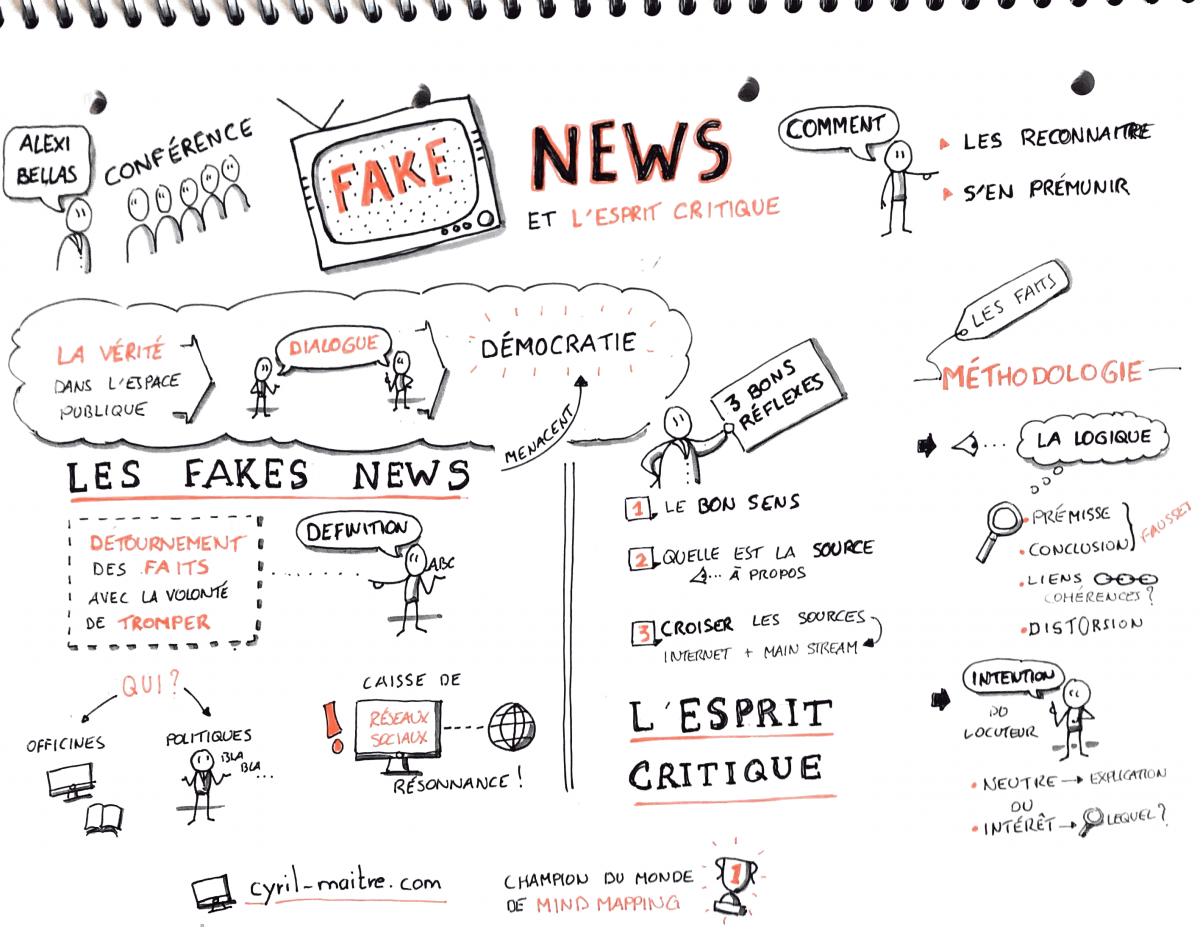 ALEXI
BELLAS
CONFÉRENCE
FAKE
NEWS
ET L'ESPRIT CRITIQUE
COMMENT
LES RECONNAITRE
S'EN PRÉMUNIR
LA VÉRITÉ
DANS L'ESPACE
PUBLIQUE
DIALOGUE
DÉMOCRATIE
MENACENT
LES FAKES NEWS
DÉTOURNEMENT
DES FAITS
AVEC LA VOLONTÉ
DE TROMPER
DEFINITION
ABC
QUI?
OFFICINES
POLITIQUES
BLA
BLA...
CAISSE DE
RÉSEAUX
SOCIAUX
RÉSONNANCE!
3 BONS
RÉFLEXES
1 LE BON SENS
2 QUELLE EST LA SOURCE
À PROPOS
3 CROISER LES SOURCES
INTERNET + MAIN STREAM
L'ESPRIT
CRITIQUE
LES FAITS
MÉTHODOLOGIE
LA LOGIQUE
PRÉMISSE
CONCLUSION
FAUSSE?
LIENS
COHÉRENCES?
DISTORSION
INTENTION
DU
LOCUTEUR
NEUTRE → EXPLICATION
OU
INTÉRÊT → LEQUEL?
cyril-maitre.com
CHAMPION DU MONDE
DE MIND MAPPING
1